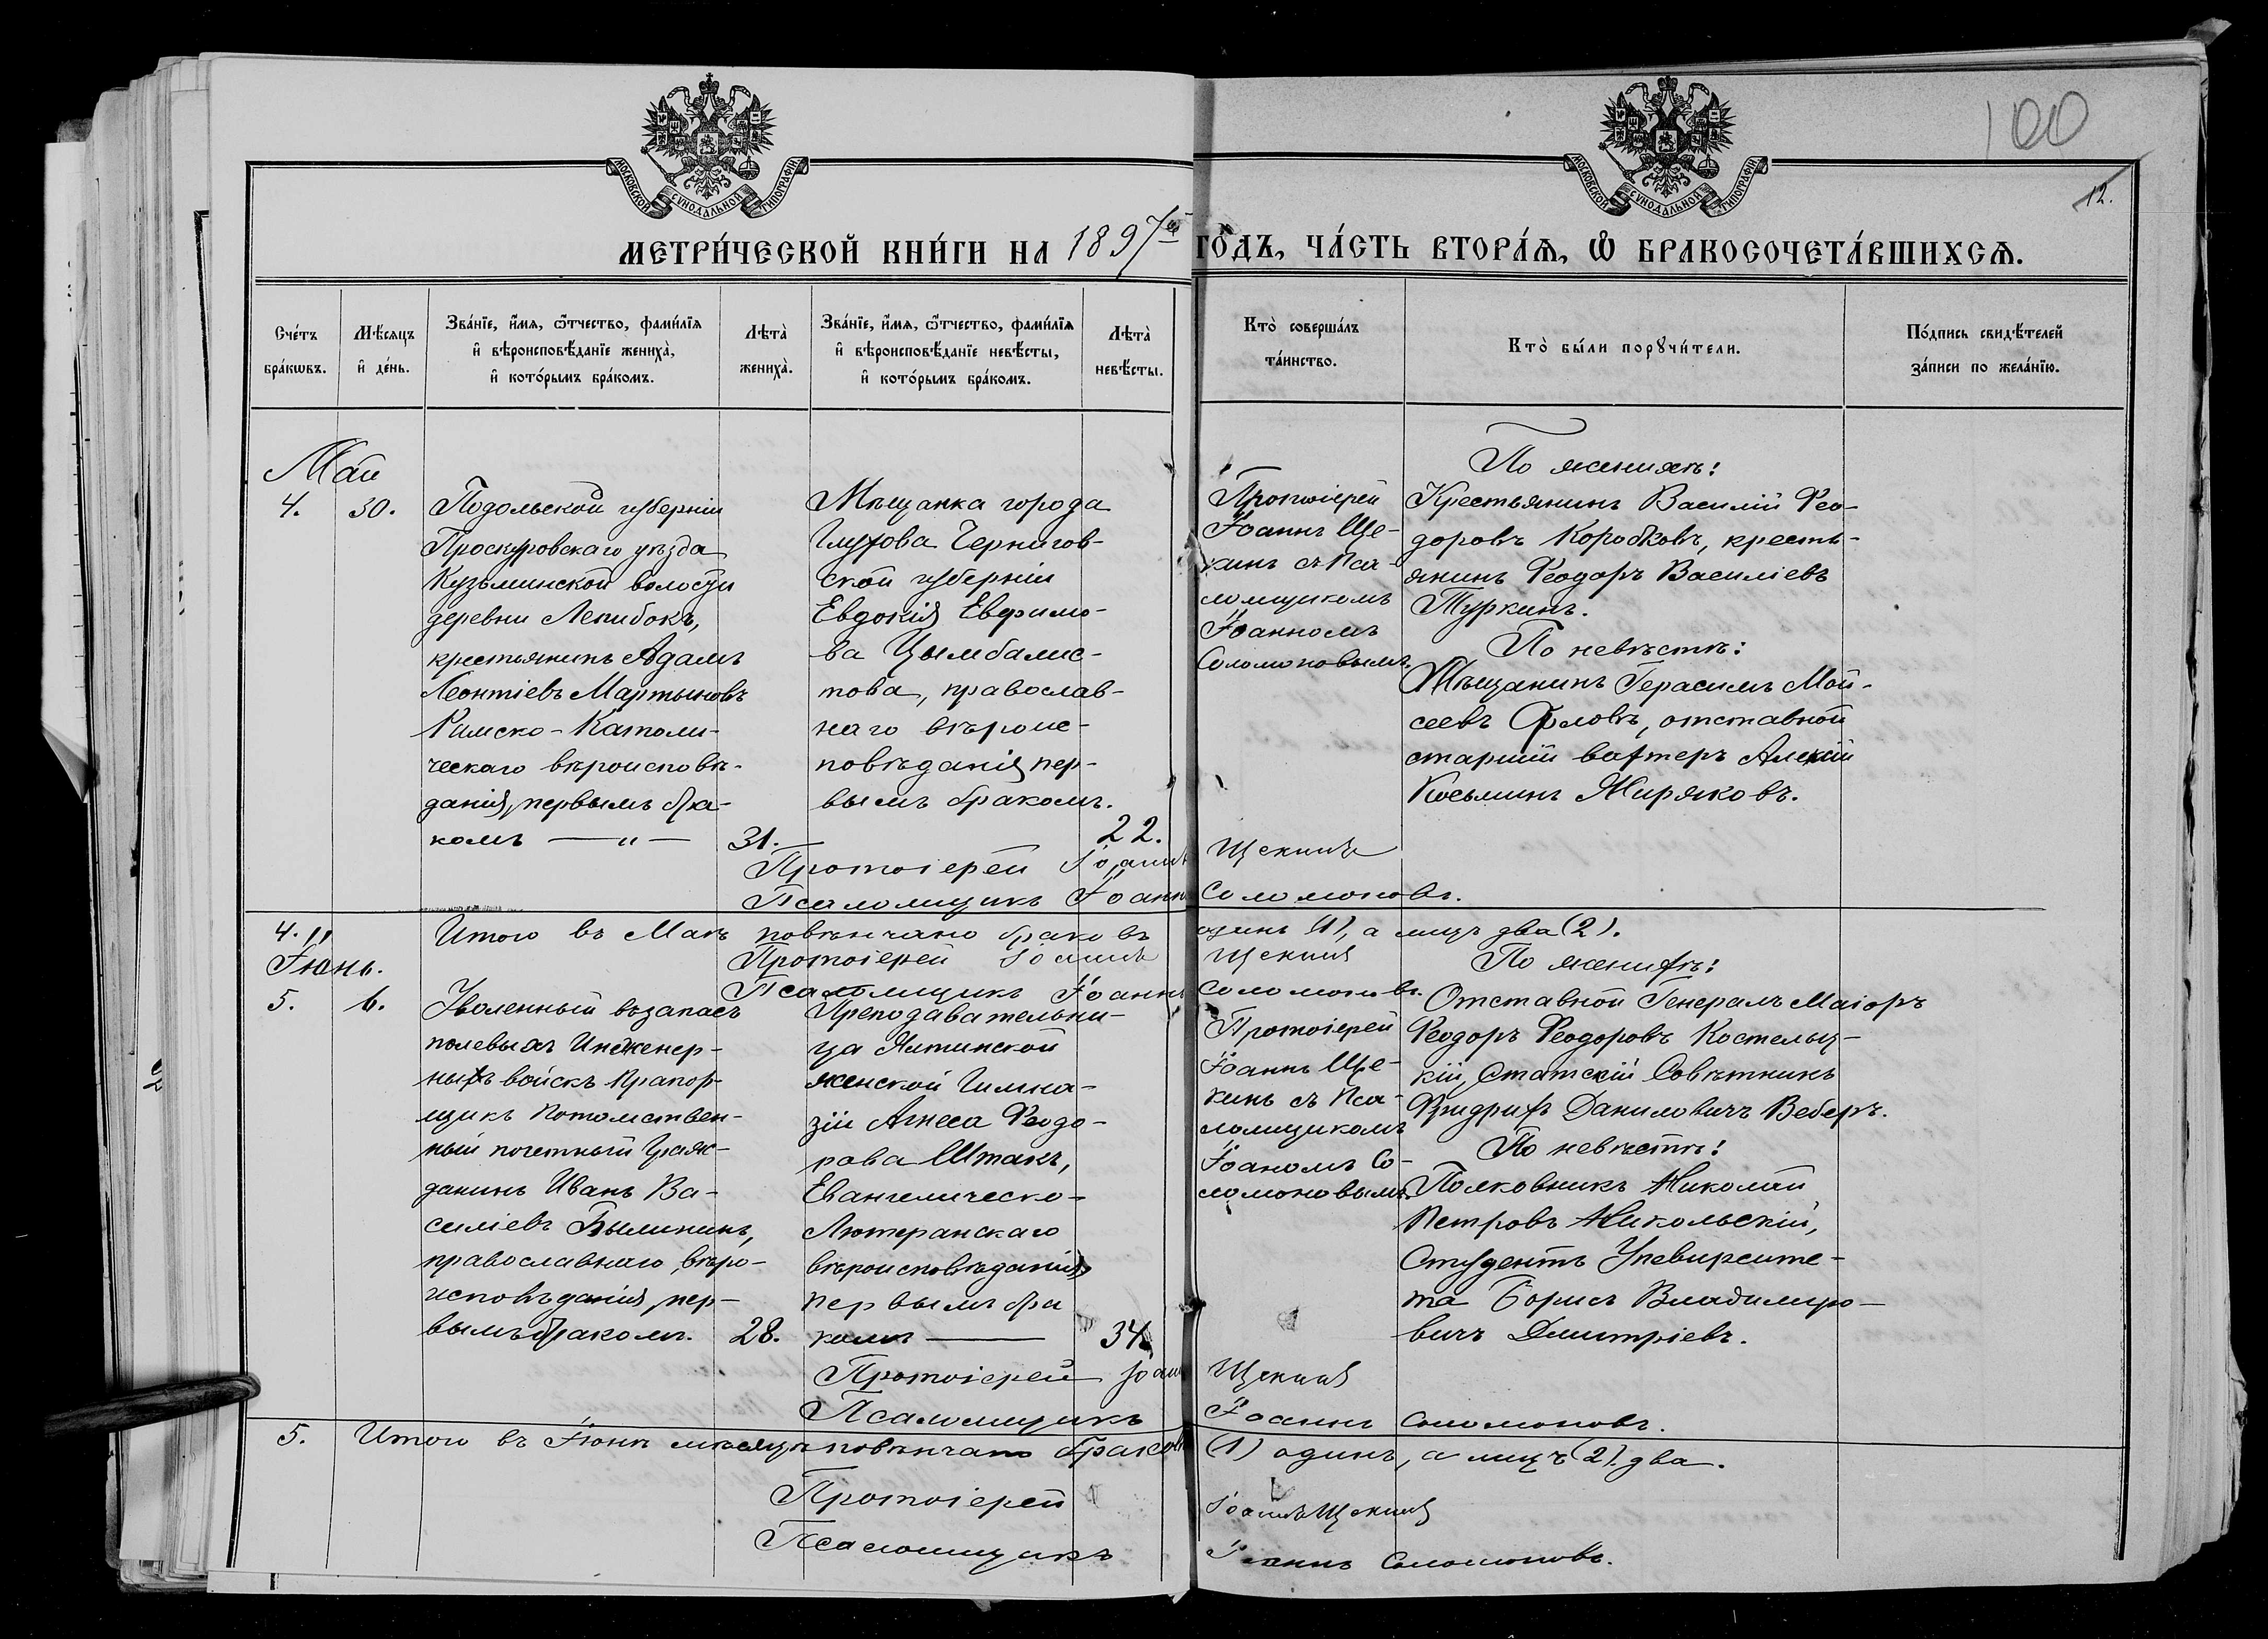 100
12.
МОСКОВСКОЙ СУНОДАЛЬНОЙ ТИПОГРАФІИ
МОСКОВСКОЙ СУНОДАЛЬНОЙ ТИПОГРАФІИ
МЕТРИ́ЧЕСКОЙ КНИ́ГИ НА 1897й ГО́ДЪ, ЧА́СТЬ ВТОРА́Ѧ, Ѽ БРАКОСОЧЕТА́ВШИХСѦ.
Сче́тъ
бра́кѡвъ.
Мѣ́сѧцъ
и҆ де́нь.
Зва́нїе, и҆́мѧ, ѻ҆́тчество, фами́лїѧ
и҆ вѣроисповѣ́данїе жениха̀,
и҆ кото́рымъ бра́комъ.
Лѣта̀
жениха̀.
Зва́нїе, и҆́мѧ, ѻ҆́тчество, фами́лїѧ
и҆ вѣроисповѣ́данїе невѣ́сты,
и҆ кото́рымъ бра́комъ.
Лѣта̀
невѣ́сты.
Кто̀ соверша́лъ
та́инство.
Кто̀ бы́ли порꙋчи́тели.
По́дпись свидѣ́телей
за́писи по жела́нїю.
Май
4.
30.
Подольской губерніи
Проскуровскаго уѣзда
Кузьминской волости
деревни Лепибокъ,
крестьянинъ Адамъ
Леонтіевъ Мартыновъ
Римско-Католи-
ческаго вѣроисповѣ-
данія, первымъ бра-
комъ — " —
31.
Мѣщанка города
Глухова Чернигов-
ской губерніи
Евдокія Евфимо-
ва Цымбалис-
това, православ-
наго вѣроис-
повѣданія, пер-
вымъ бракомъ.
22.
Протоіерей
Іоаннъ Ще-
кинъ съ Пса-
ломщикомъ
Іоанномъ
Соломоновымъ.
По женихѣ:
Крестьянинъ Василій Ѳео-
доровъ Коробковъ, кресть-
янинъ Ѳеодоръ Василіевъ
Туркинъ.
По невѣстѣ:
Мѣщанинъ Герасимъ Мой-
сеевъ Орловъ, отставной
старшій вахтеръ Алексій
Косьминъ Миряковъ.
Протоіерей Іоаннъ Щекинъ
Псаломщикъ Іоаннъ Соломоновъ.
4. Итого въ Маѣ повѣнчано браковъ одинъ (1), а лицъ два (2).
Протоіерей Іоаннъ Щекинъ
Псаломщикъ Іоаннъ Соломоновъ.
Іюнь.
5.
6.
Уволенный въ запасъ
полевыхъ Инженер-
ныхъ войскъ Прапор-
щикъ Потомствен-
ный почетный Граж-
данинъ Иванъ Ва-
силіевъ Былинкинъ,
православнаго вѣро-
исповѣданія, пер-
вымъ бракомъ.
28.
Преподавательни-
ца Ялтинской
женской Гимна-
зіи Агнеса Ѳеодо-
рова Штакъ,
Евангелическо-
Лютеранскаго
вѣроисповѣданія,
первымъ бра
комъ —
34.
Протоіерей
Іоаннъ Ще-
кинъ съ Пса-
ломщикомъ
Іоаномъ Со-
ломоновымъ.
По женихѣ:
Отставной Генералъ Маіоръ
Ѳеодоръ Ѳеодоровъ Костелец-
кій, Статскій Совѣтникъ
Фридрихъ Даниловичъ Веберъ.
По невѣстѣ:
Полковникъ Николай
Петровъ Никольскій,
Студентъ Университе-
та Борисъ Владимиро-
вичъ Дмитріевъ.
Протоіерей Іоаннъ Щекинъ
Псаломщикъ Іоаннъ Соломоновъ.
5. Итого въ Іюнѣ мѣсяцѣ повѣнчано браковъ (1) одинъ, а лицъ (2) два.
Протоіерей Іоаннъ Щекинъ
Псаломщикъ Іоаннъ Соломоновъ.